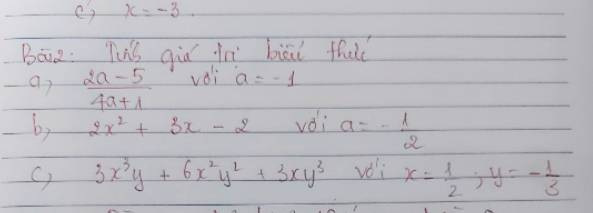 c, x = -3.
Bài 2: Tính giá trị biểu thức
a, (2a - 5)/(4a + 1) với a = -1
b, 2x² + 3x - 2 với a = -1/2
c, 3x³y + 6x²y² + 3xy³ với x = 1/2; y = -1/3